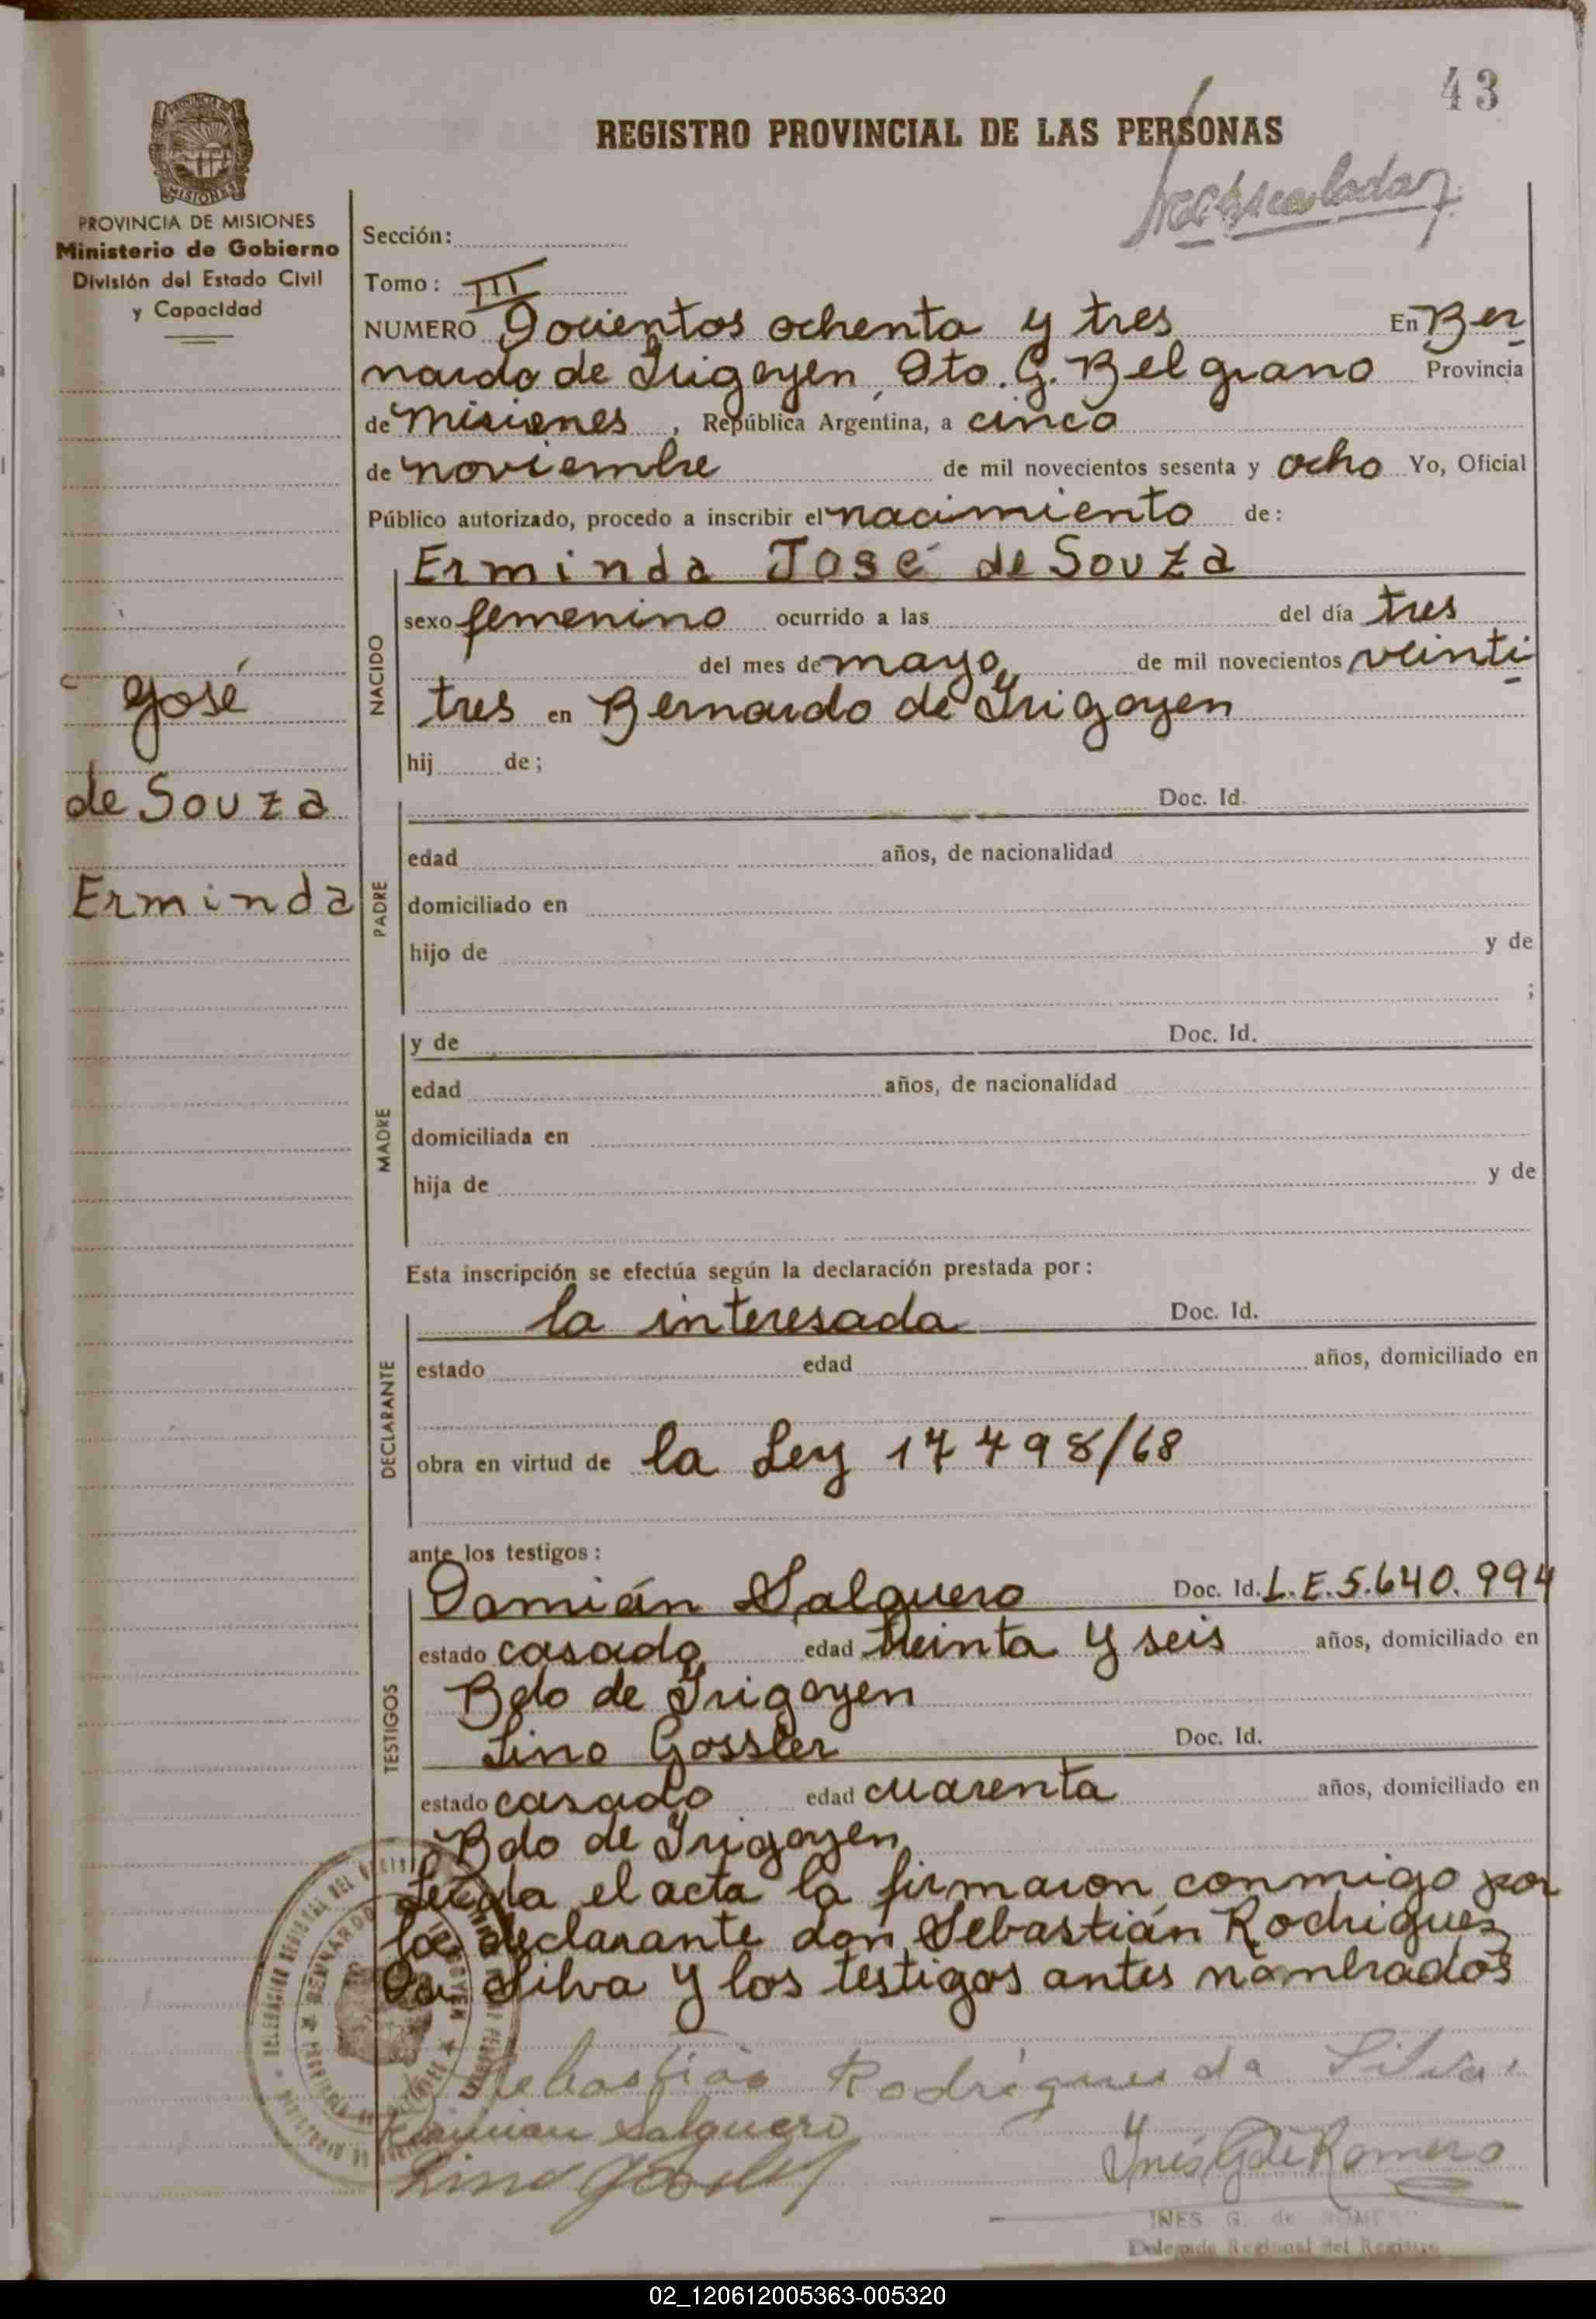 43
REGISTRO PROVINCIAL DE LAS PERSONAS
PROVINCIA DE MISIONES
Ministerio de Gobierno
División del Estado Civil
y Capacidad
Sección:
Tomo: III
NUMERO Docientos ochenta y tres En Ber
nardo de Irigoyen, Dto. G. Belgrano Provincia
de misiones, República Argentina, a cinco
de noviembre de mil novecientos sesenta y ocho Yo, Oficial
Público autorizado, procedo a inscribir el nacimiento de:
Erminda José de Souza
NACIDO
sexo femenino ocurrido a las del día tres
del mes de mayo de mil novecientos veinti
tres en Bernardo de Irigoyen
hij de;
José
de Souza
Erminda
PADRE
Doc. Id.
edad años, de nacionalidad
domiciliado en
hijo de y de
;
MADRE
y de Doc. Id.
edad años, de nacionalidad
domiciliada en
hija de y de
Esta inscripción se efectúa según la declaración prestada por:
DECLARANTE
la interesada Doc. Id.
estado edad años, domiciliado en
obra en virtud de la Ley 17498/68
ante los testigos:
TESTIGOS
Damián Salguero Doc. Id. L.E.5.640.994
estado casado edad treinta y seis años, domiciliado en
Bdo de Irigoyen
Lino Gossler Doc. Id.
estado casado edad cuarenta años, domiciliado en
Bdo de Irigoyen
Leida el acta la firmaron conmigo por
la declarante don Sebastián Rodriguez
Da Silva y los testigos antes nombrados
Sebastião Rodrigues da Silva
Damian Salguero
Inés G de Romero
Lino
INES G. de
Delegada Regional del Registro
02_120612005363-005320